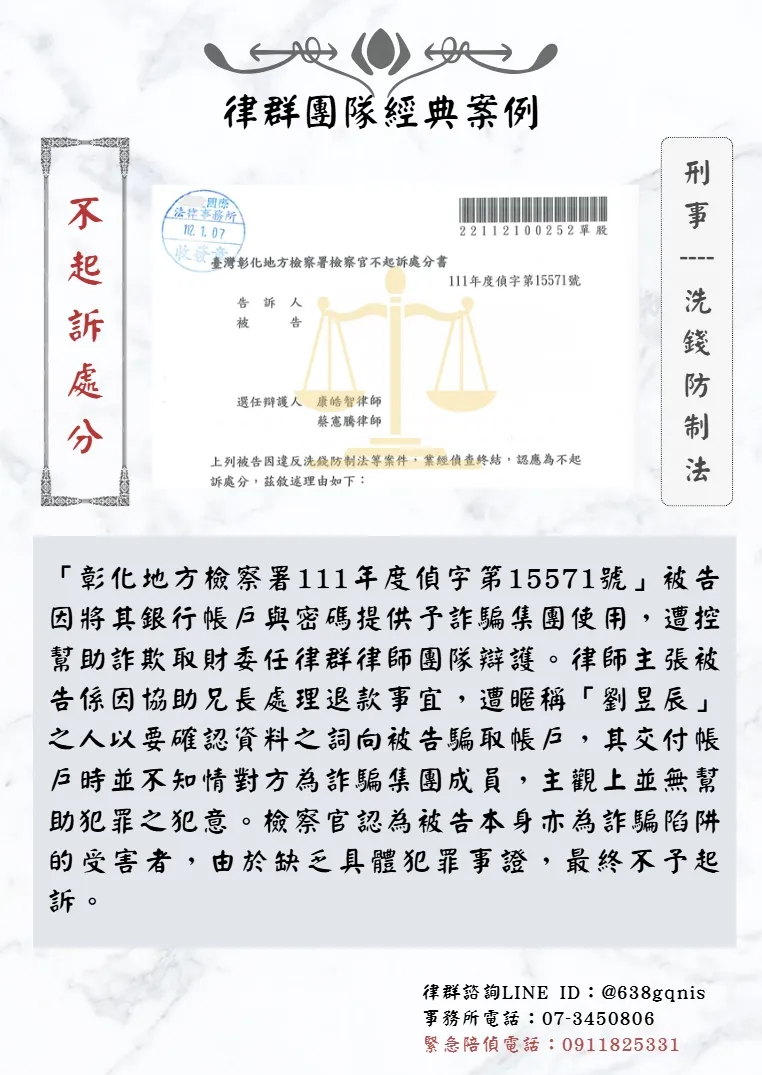 律群團隊經典案例
不起訴處分
刑事----洗錢防制法
國際
法律事務所
112.1.07
收發章
22112100252單股
臺灣彰化地方檢察署檢察官不起訴處分書
111年度偵字第15571號
告訴人
被告
選任辯護人 康皓智律師
蔡憲騰律師
上列被告因違反洗錢防制法等案件,業經偵查終結,認應為不起
訴處分,茲敘述理由如下:
「彰化地方檢察署111年度偵字第15571號」被告
因將其銀行帳戶與密碼提供予詐騙集團使用,遭控
幫助詐欺取財委任律群律師團隊辯護。律師主張被
告係因協助兄長處理退款事宜,遭暱稱「劉昱辰」
之人以要確認資料之詞向被告騙取帳戶,其交付帳
戶時並不知情對方為詐騙集團成員,主觀上並無幫
助犯罪之犯意。檢察官認為被告本身亦為詐騙陷阱
的受害者,由於缺乏具體犯罪事證,最終不予起
訴。
律群諮詢LINE ID:@638gqnis
事務所電話:07-3450806
緊急陪偵電話:0911825331